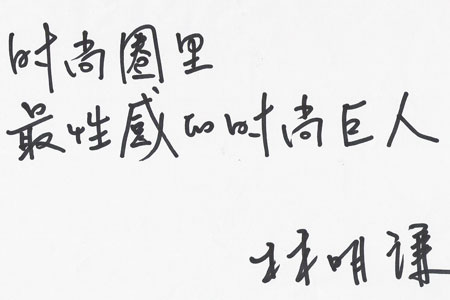 时尚圈里
最性感的时尚巨人
林明谦